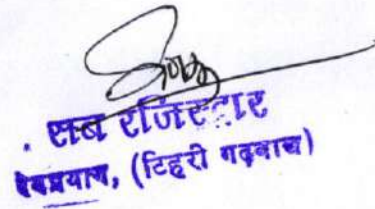 सब रजिस्टार
देवप्रयाग, (टिहरी गढ़वाल)